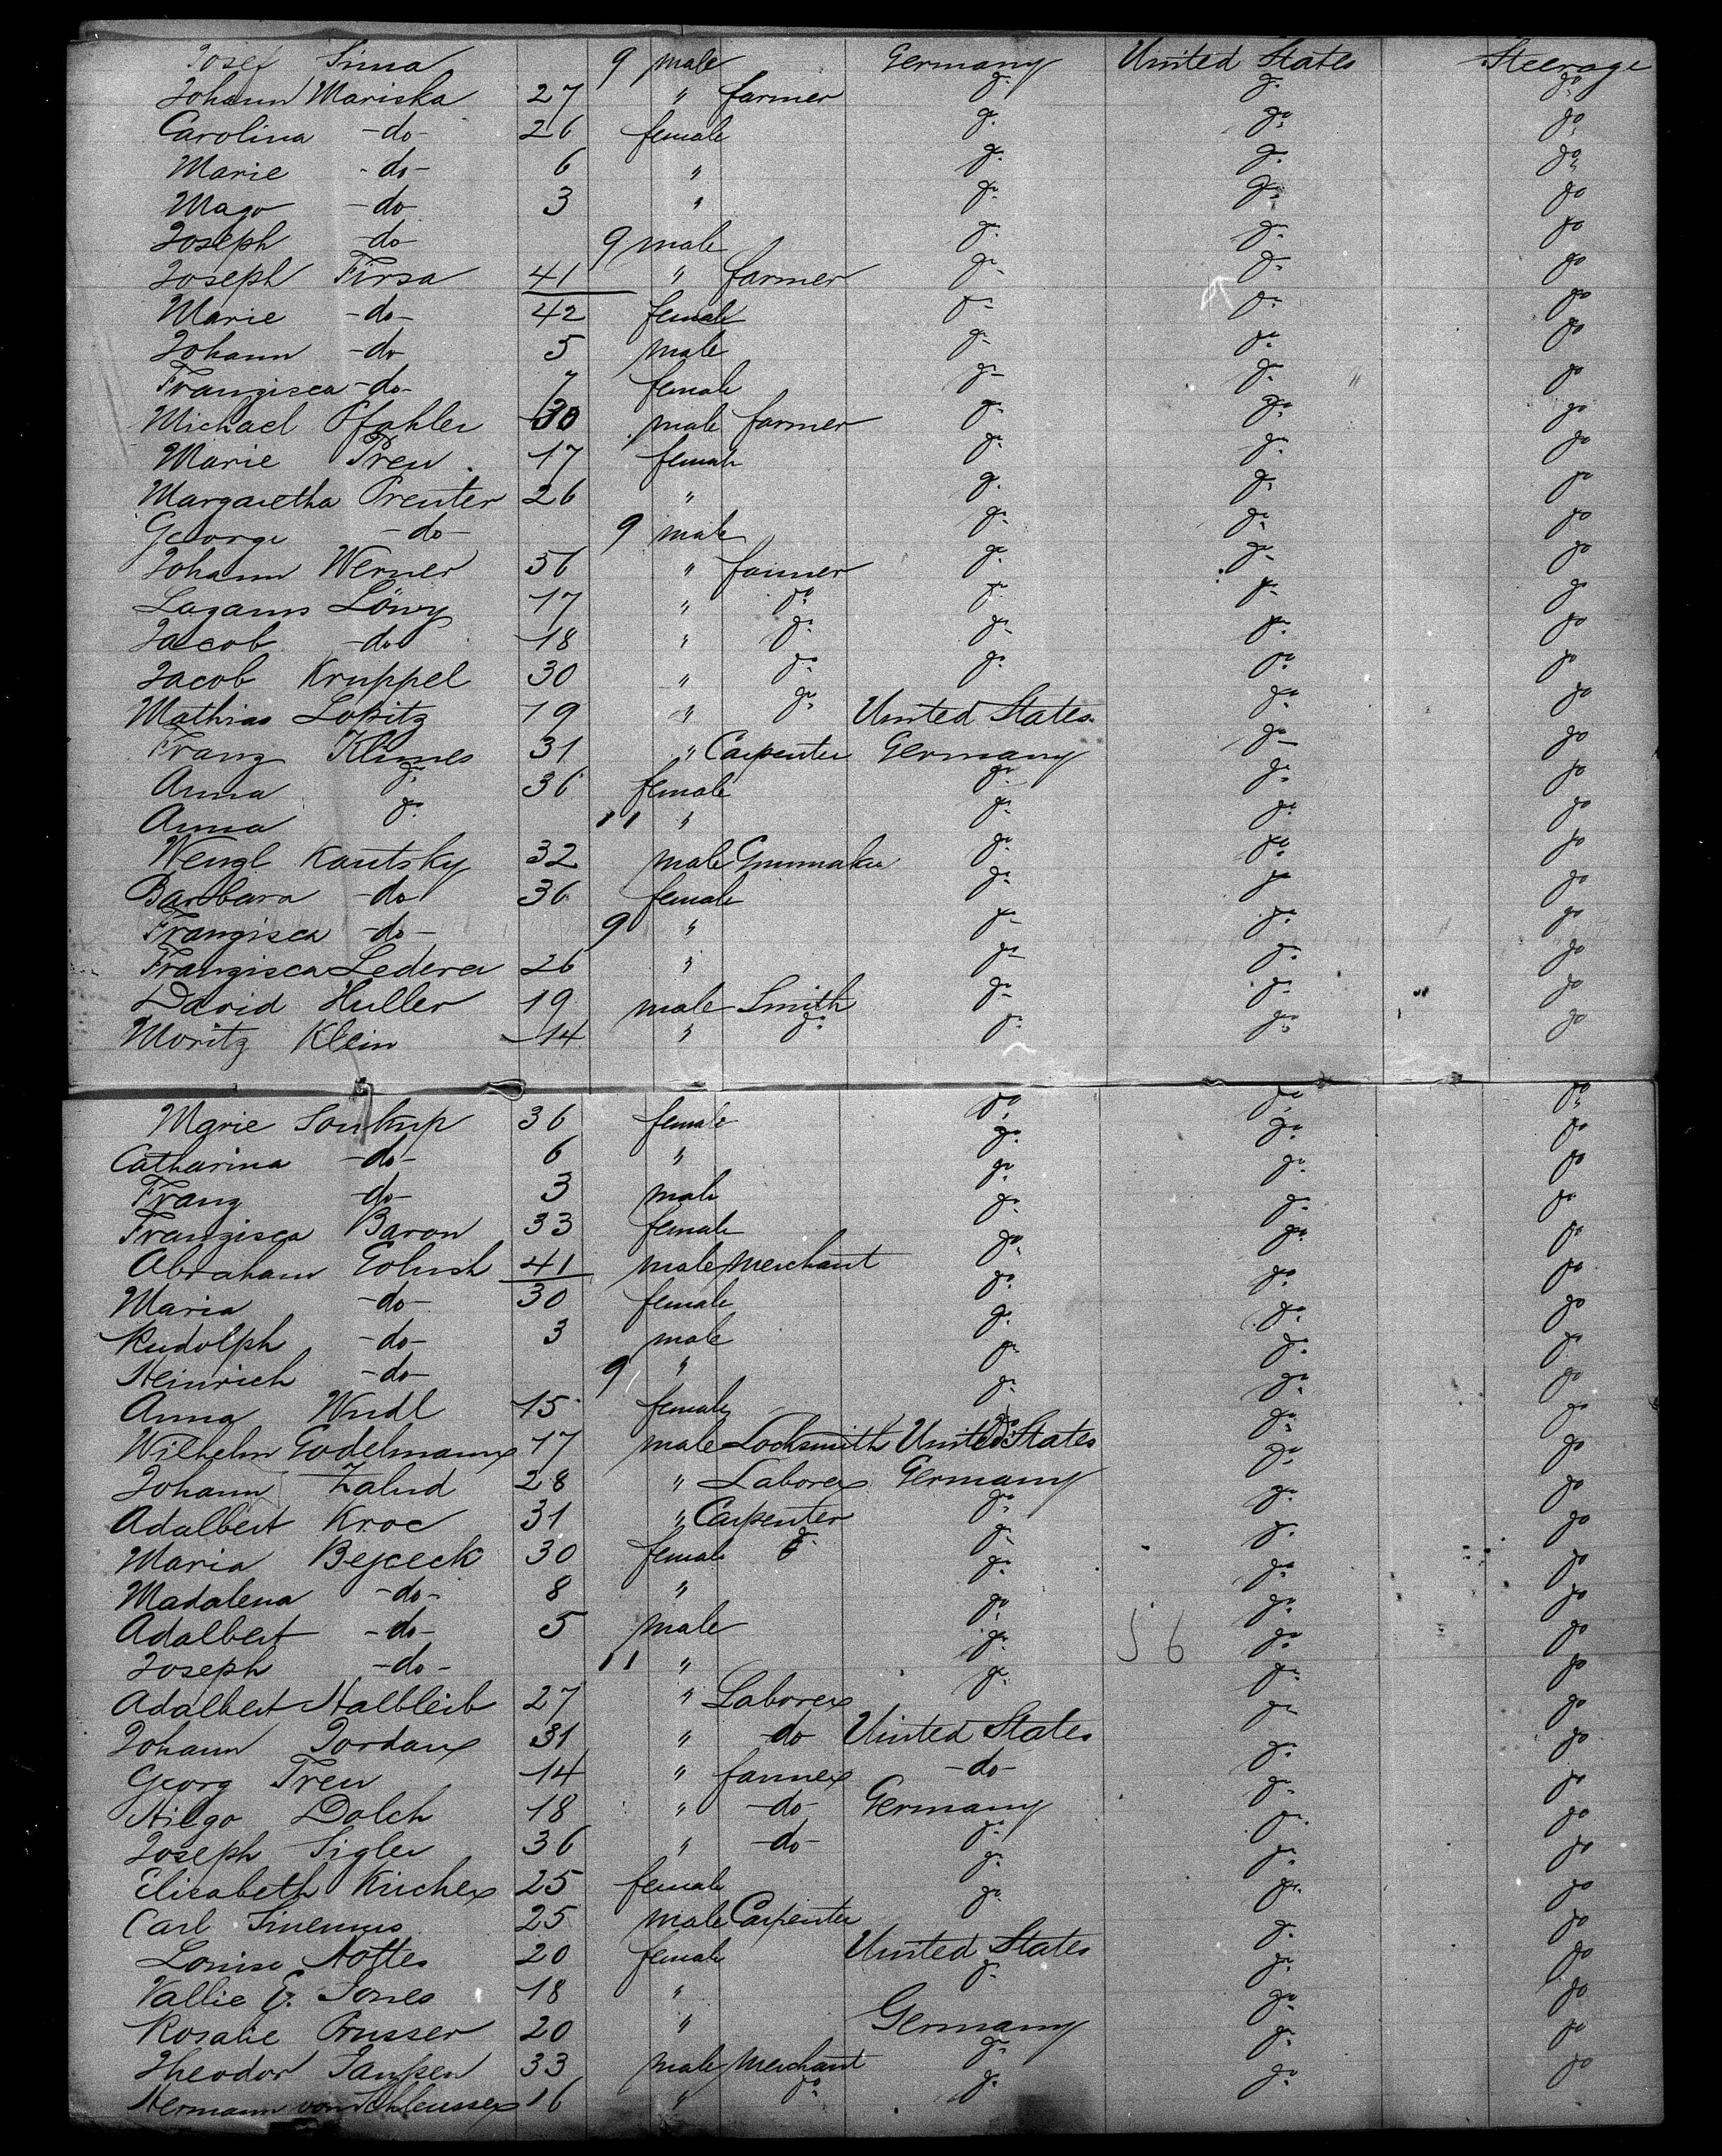 Josef Sima 9 male Germany United States Steerage
Johann Mariska 27 " farmer do do do
Carolina -do- 26 female do do do
Marie -do- 6 " do do do
Mago -do- 3 " do do do
Joseph -do- 9 male do do do
Joseph Firsa 41 " farmer do do do
Marie -do- 42 female do do do
Johann -do- 5 male do do do
Franzisca -do- 7 female do do do
Michael Pfahler 30 male farmer do do do
Marie Treu 17 female do do do
Margaretha Prenter 26 " do do do
George -do- 9 male do do do
Johann Werner 36 " farmer do do do
Lazarus Löwy 17 " do do do do
Jacob -do- 18 " do do do do
Jacob Kruppel 30 " do do do do
Mathias Lopitz 19 " do United States do do
Franz Klimes 31 " Carpenter Germany do do
Anna do 36 female do do do
Anna do 11 " do do do
Wenzl Kautsky 32 male Gunmaker do do do
Barbara -do- 36 female do do do
Franzisca -do- 9 " do do do
Franzisca Lederer 26 " do do do
David Huller 19 male Smith do do do
Moritz Klein 14 " do do do do
Marie Soukup 36 female do do do
Catharina -do- 6 " do do do
Franz -do- 3 male do do do
Franzisca Baron 33 female do do do
Abraham 41 male merchant do do do
Maria -do- 30 female do do do
Rudolph -do- 3 male do do do
Heinrich -do- 9 " do do do
Anna Wudl 15 female do do do
Wilhelm Godelmann 17 male Locksmith United States do do
Johann Zalud 28 " Laborer Germany do do
Adalbert Kroc 31 " Carpenter do do do
Maria Bejceck 30 female do do do
Madalena -do- 8 " do do do
Adalbert -do- 5 male do do do
56
Joseph -do- 11 " do do do
Adalbert Halbleib 27 " Laborer do do do
Johann Jordan 31 " do United States do do
Georg Treu 14 " farmer -do- do do
Hugo Dolch 18 " -do- Germany do do
Joseph Sigler 36 " -do- do do do
Elisabeth Kircher 25 female do do do
Carl Sinemus 25 male Carpenter do do do
Louise Nottes 20 female United States do do
Vallie E. Jones 18 " do do do
Rosalie Prusser 20 " Germany do do
Theodor Janssen 33 male merchant do do do
Hermann von Schleusser 16 " do do do do